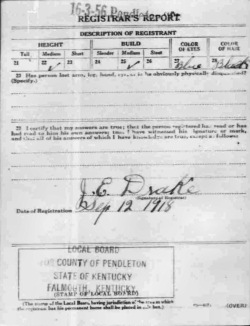 16-3-56 Pendleton
REGISTRAR'S REPORT
DESCRIPTION OF REGISTRANT
HEIGHT BUILD COLOR OF EYES COLOR OF HAIR
Tall Medium Short Slender Medium Stout
21 22 ✓ 23 24 25 ✓ 26 27 Blue 28 Black
29 Has person lost arm, leg, hand, eye, or is he obviously physically disqualified?
(Specify.)
30 I certify that my answers are true; that the person registered has read or has
had read to him his own answers; that I have witnessed his signature or mark,
and that all of his answers of which I have knowledge are true, except as follows:
J. E. Drake
(Signature of Registrar)
Date of Registration Sep 12 1918
LOCAL BOARD
COUNTY OF PENDLETON
STATE OF KENTUCKY
FALMOUTH, KENTUCKY
(STAMP OF LOCAL BOARD)
(The stamp of the Local Board, having jurisdiction of the area in which
the registrant has his permanent home shall be placed in this box.)
(OVER)